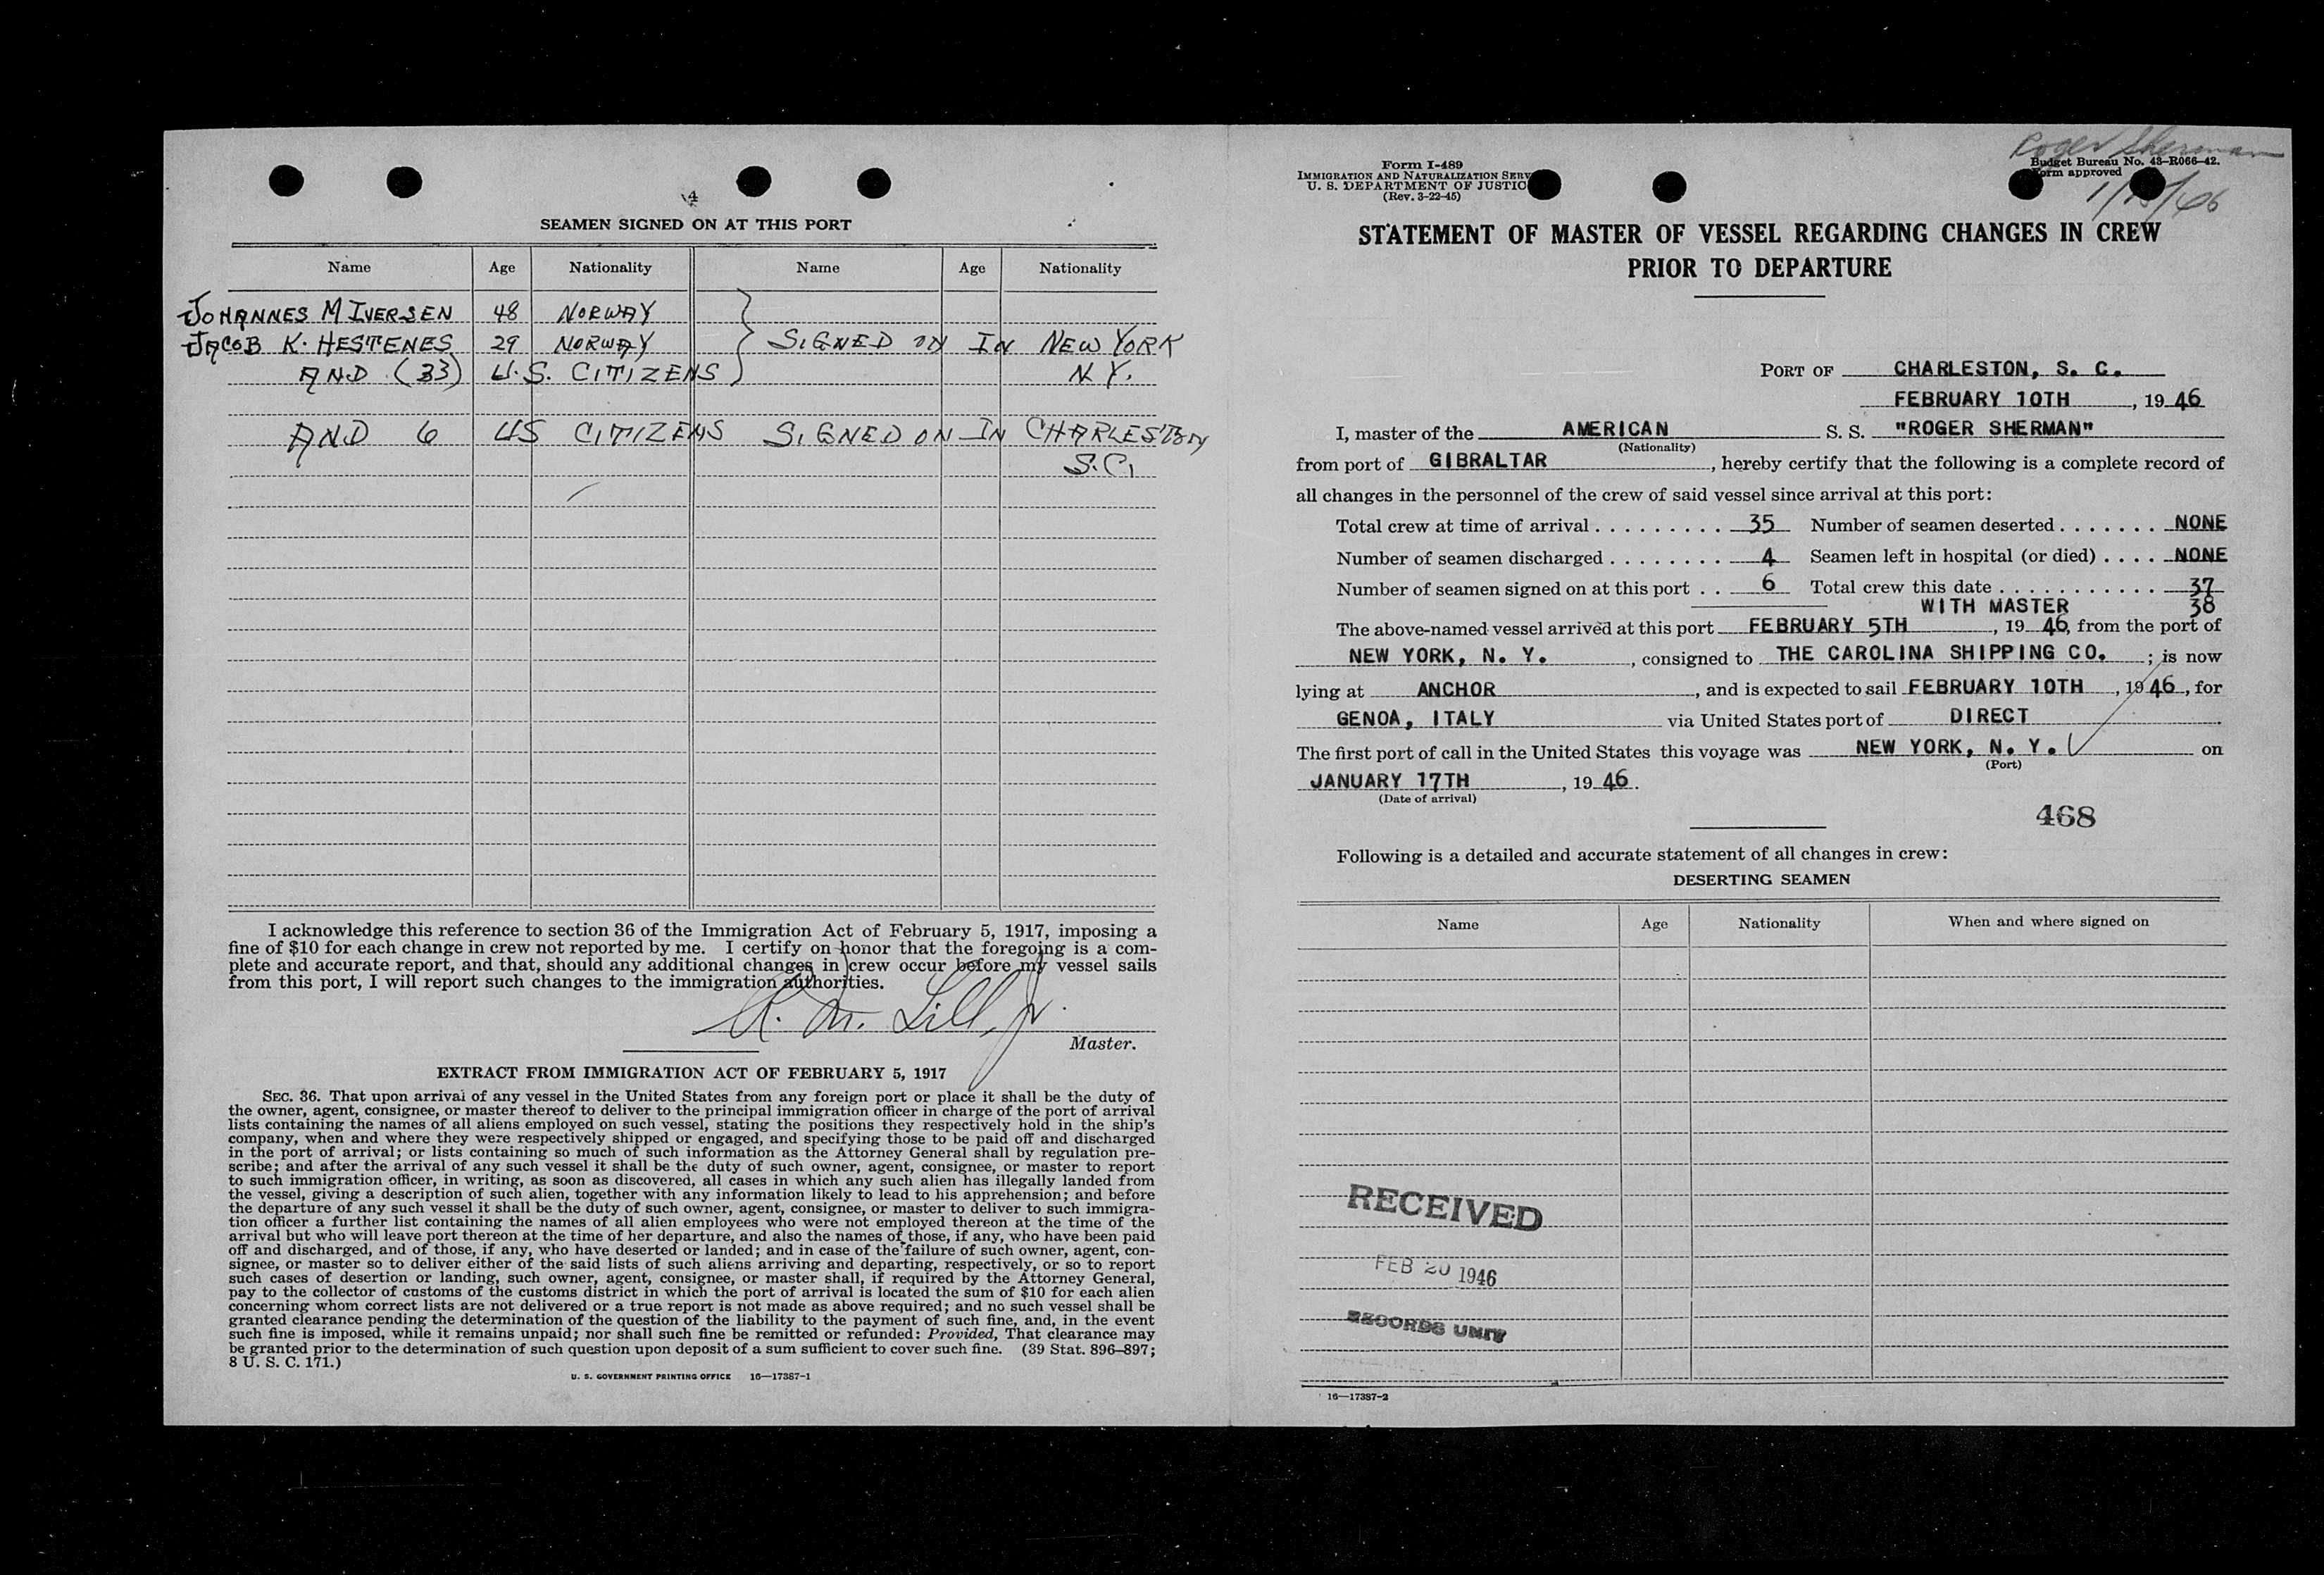 4
SEAMEN SIGNED ON AT THIS PORT
Name Age Nationality Name Age Nationality
JOHANNES M IVERSEN 48 NORWAY
JACOB K. HESTENES 29 NORWAY } SIGNED ON IN NEW YORK
AND (33) U.S. CITIZENS N.Y.
AND 6 US CITIZENS SIGNED ON IN CHARLESTON
S.C.
I acknowledge this reference to section 36 of the Immigration Act of February 5, 1917, imposing a
fine of $10 for each change in crew not reported by me. I certify on honor that the foregoing is a com-
plete and accurate report, and that, should any additional changes in crew occur before my vessel sails
from this port, I will report such changes to the immigration authorities.
Lill, Jr.
Master.
EXTRACT FROM IMMIGRATION ACT OF FEBRUARY 5, 1917
SEC. 36. That upon arrival of any vessel in the United States from any foreign port or place it shall be the duty of
the owner, agent, consignee, or master thereof to deliver to the principal immigration officer in charge of the port of arrival
lists containing the names of all aliens employed on such vessel, stating the positions they respectively hold in the ship's
company, when and where they were respectively shipped or engaged, and specifying those to be paid off and discharged
in the port of arrival; or lists containing so much of such information as the Attorney General shall by regulation pre-
scribe; and after the arrival of any such vessel it shall be the duty of such owner, agent, consignee, or master to report
to such immigration officer, in writing, as soon as discovered, all cases in which any such alien has illegally landed from
the vessel, giving a description of such alien, together with any information likely to lead to his apprehension; and before
the departure of any such vessel it shall be the duty of such owner, agent, consignee, or master to deliver to such immigra-
tion officer a further list containing the names of all alien employees who were not employed thereon at the time of the
arrival but who will leave port thereon at the time of her departure, and also the names of those, if any, who have been paid
off and discharged, and of those, if any, who have deserted or landed; and in case of the failure of such owner, agent, con-
signee, or master so to deliver either of the said lists of such aliens arriving and departing, respectively, or so to report
such cases of desertion or landing, such owner, agent, consignee, or master shall, if required by the Attorney General,
pay to the collector of customs of the customs district in which the port of arrival is located the sum of $10 for each alien
concerning whom correct lists are not delivered or a true report is not made as above required; and no such vessel shall be
granted clearance pending the determination of the question of the liability to the payment of such fine, and, in the event
such fine is imposed, while it remains unpaid; nor shall such fine be remitted or refunded: Provided, That clearance may
be granted prior to the determination of such question upon deposit of a sum sufficient to cover such fine. (39 Stat. 896–897;
8 U. S. C. 171.)
U. S. GOVERNMENT PRINTING OFFICE 16—17387-1
Roger Sherman
Form I-489
IMMIGRATION AND NATURALIZATION SERV
U. S. DEPARTMENT OF JUSTIC
(Rev. 3-22-45)
Budget Bureau No. 43–R066–42.
Form approved
STATEMENT OF MASTER OF VESSEL REGARDING CHANGES IN CREW
PRIOR TO DEPARTURE
PORT OF CHARLESTON, S. C.
FEBRUARY 10TH, 19 46
I, master of the AMERICAN S. S. "ROGER SHERMAN"
(Nationality)
from port of GIBRALTAR, hereby certify that the following is a complete record of
all changes in the personnel of the crew of said vessel since arrival at this port:
Total crew at time of arrival . . . . . . . . . 35 Number of seamen deserted . . . . . . . NONE
Number of seamen discharged . . . . . . . . 4 Seamen left in hospital (or died) . . . . NONE
Number of seamen signed on at this port . . 6 Total crew this date . . . . . . . . . . . 37
WITH MASTER 38
The above-named vessel arrived at this port FEBRUARY 5TH, 19 46, from the port of
NEW YORK, N. Y., consigned to THE CAROLINA SHIPPING CO. ; is now
lying at ANCHOR, and is expected to sail FEBRUARY 10TH, 19 46, for
GENOA, ITALY via United States port of DIRECT.
The first port of call in the United States this voyage was NEW YORK, N. Y. on
(Port)
JANUARY 17TH, 19 46.
(Date of arrival)
468
Following is a detailed and accurate statement of all changes in crew:
DESERTING SEAMEN
Name Age Nationality When and where signed on
RECEIVED
FEB 20 1946
RECORDS UNIT
16—17387-2